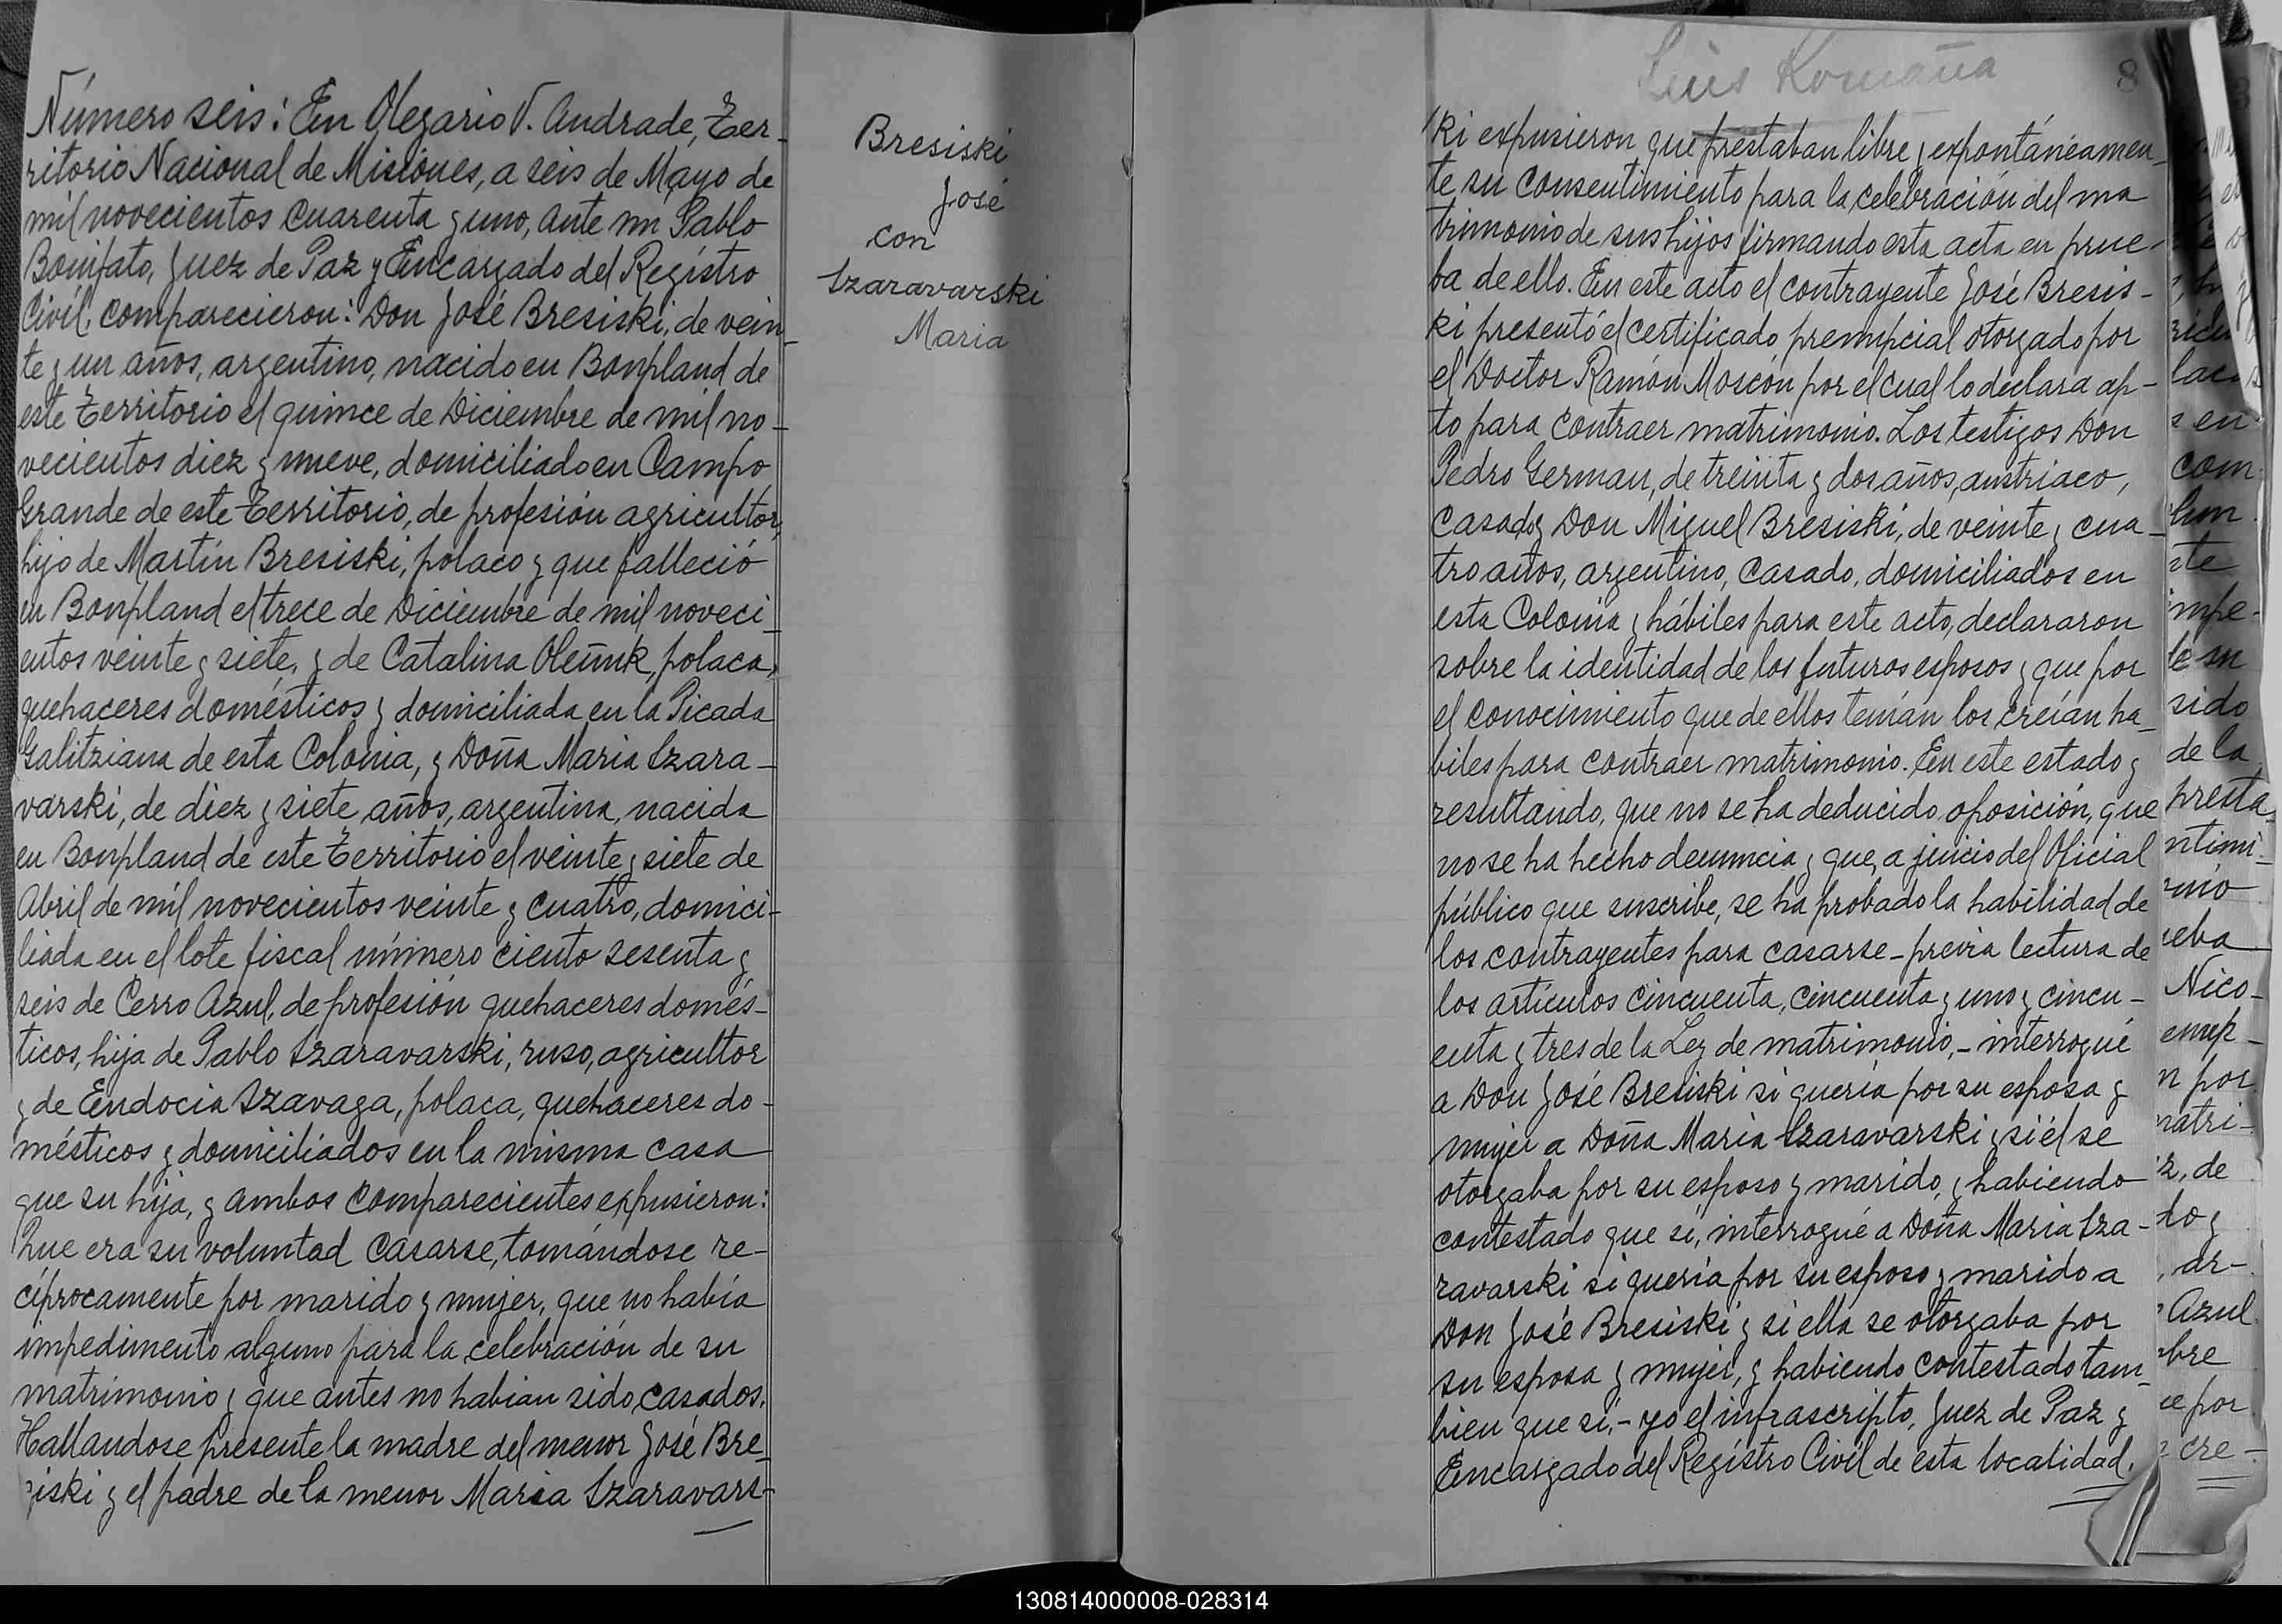 Número seis: En Olegario V. Andrade, Ter-
ritorio Nacional de Misiones, a seis de Mayo de
mil novecientos cuarenta y uno, ante mi Pablo
Bonifato, Juez de Paz y Encargado del Registro
Civil, comparecieron: Don José Bresiski, de vein-
te y un años, argentino, nacido en Bonpland de
este Territorio el quince de Diciembre de mil no-
vecientos diez y nueve, domiciliado en Campo
Grande de este Territorio, de profesión agricultor,
hijo de Martín Bresiski, polaco y que falleció
en Bonpland el trece de Diciembre de mil noveci-
entos veinte y siete, y de Catalina Oleñnk, polaca,
quehaceres domésticos y domiciliada en la Picada
Galitziana de esta Colonia, y Doña Maria Szara-
varski, de diez y siete años, argentina, nacida
en Bonpland de este Territorio el veinte y siete de
Abril de mil novecientos veinte y cuatro, domici-
liada en el lote fiscal número ciento sesenta y
seis de Cerro Azul, de profesión quehaceres domés-
ticos, hija de Pablo Szaravarski, ruso, agricultor
y de Eudocia Szavaga, polaca, quehaceres do-
mésticos y domiciliados en la misma casa
que su hija, y ambos comparecientes expusieron:
Que era su voluntad casarse, tomándose re-
cíprocamente por marido y mujer, que no había
impedimento alguno para la celebración de su
matrimonio y que antes no habian sido casados.
Hallandose presente la madre del menor José Bre-
siski y el padre de la menor Maria Szaravars-
Bresiski
José
con
Szaravarski
Maria
Luis Romaña
8
ki expusieron que prestaban libre y expontáneamen-
te su consentimiento para la celebración del ma
trimonio de sus hijos firmando esta acta en prue-
ba de ello. En este acto el contrayente José Bresis-
ki presentó el certificado prenupcial otorgado por
el Doctor Ramón Moscón por el cual lo declara ap-
to para contraer matrimonio. Los testigos Don
Pedro German, de treinta y dos años, austriaco,
casado y Don Miguel Bresiski, de veinte y cua-
tro años, argentino, casado, domiciliados en
esta Colonia y hábiles para este acto, declararon
sobre la identidad de los futuros esposos y que por
el conocimiento que de ellos tenían los creían ha-
biles para contraer matrimonio. En este estado y
resultando, que no se ha deducido oposición, que
no se ha hecho denuncia y que, a juicio del Oficial
público que suscribe, se ha probado la habilidad de
los contrayentes para casarse - previa lectura de
los artículos cincuenta, cincuenta y uno y cincu-
enta y tres de la Ley de matrimonio, - interrogué
a Don José Bresiski si quería por su esposa y
mujer a Doña Maria Szaravarski y si él se
otorgaba por su esposo y marido, y habiendo
contestado que sí, interrogué a Doña Maria Sza-
ravarski si quería por su esposo y marido a
Don José Bresiski y si ella se otorgaba por
su esposa y mujer, y habiendo contestado tam-
bien que sí, - yo el infrascripto, Juez de Paz y
Encargado del Registro Civil de esta localidad,
s en
com
te
impe-
le su
sido
de la
presta-
ntimi-
nio
ueba
Nico-
enup-
n por
matri-
z, de
do y
, ar-
Azul
bre
ue por
cre-
130814000008-028314